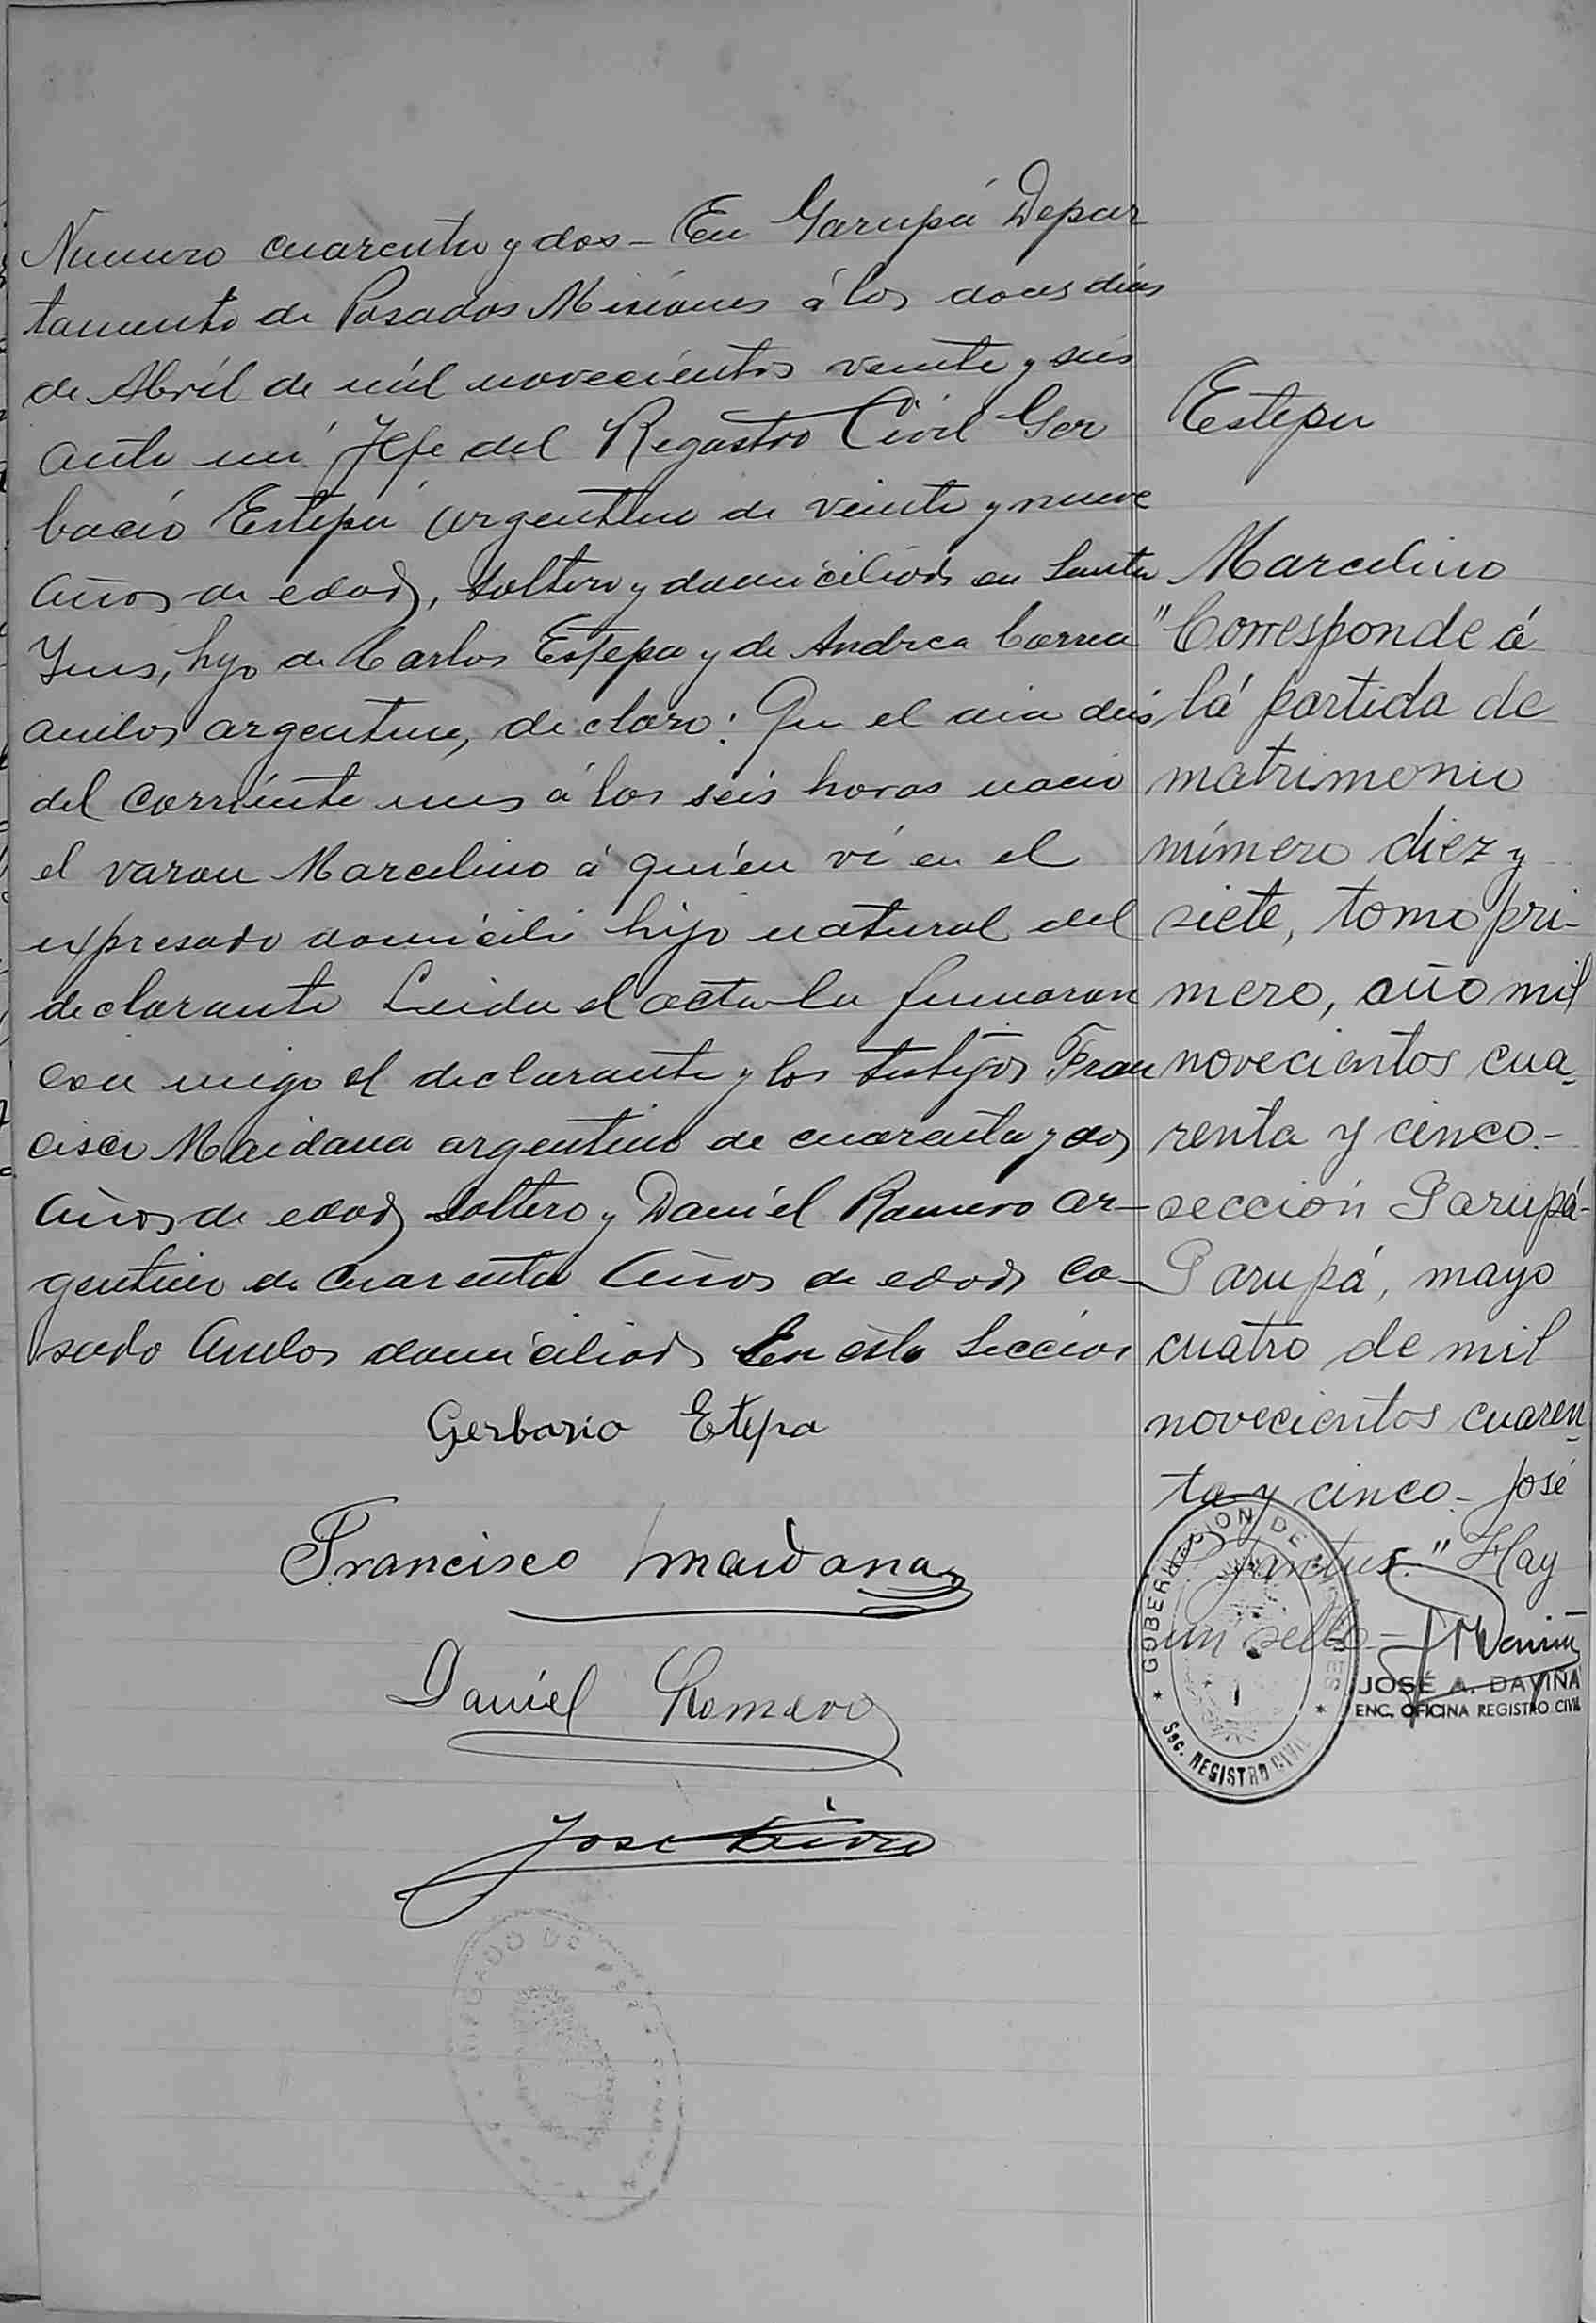 Numero cuarenta y dos - En Garupá Depar
tamento de Posadas Misiones á los doces dias
de Abril de mil novecientos veinte y seis
ante mi Jefe del Regastro Civil Ger
bacio Estepa argentino de veinte y nueve
años de edad, soltero y domiciliado en Santa
Ynes, hijo de Carlos Estepa y de Andrea Correa
ambos argentino, declaro: Que el dia dies
del corriente mes á las seis horas nacio
el varon Marcelino á quien vi en el
expresado domicili hijo natural del
declarante Leida el acta la firmaron
con migo el declarante y los testigos Fran
cisco Maidana argentino de cuarenta y dos
años de edad soltero y Daniel Romero ar-
gentino de cuarenta años de edad ca-
sado ambos domiciliads En esta Seccion
Gerbasio Etepa
Francisco Maidana
Daniel Romero
Jose
Estepa
Marcelino
"Corresponde á
lá partida de
matrimonio
número diez y
siete, tomo pri-
mero, año mil
novecientos cua-
renta y cinco.-
sección Garupá-
Garupá, mayo
cuatro de mil
novecientos cuaren-
ta y cinco - José
" Hay
un sello -
GOBERNACION DE MISIONES
Sec. REGISTRO CIVIL
JOSÉ A. DAVIÑA
ENC. OFICINA REGISTRO CIVIL
JUZGADO DE PAZ